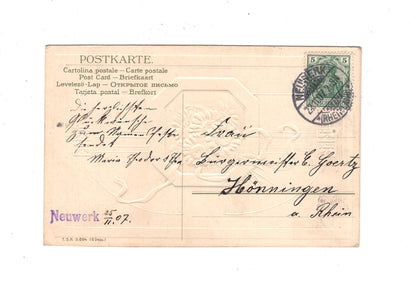 POSTKARTE.
Cartolina postale – Carte postale
Post Card – Briefkaart
Levelező-Lap – Открытое письмо
Tarjeta postal – Brefkort
5 5
Die herzlichsten
Glückwünsche
zum Namensfeste
sendet
Maria Theodor
Frau
Bürgermeister C. Goertz
Hönningen
a. Rhein
Neuwerk 25/11.07.